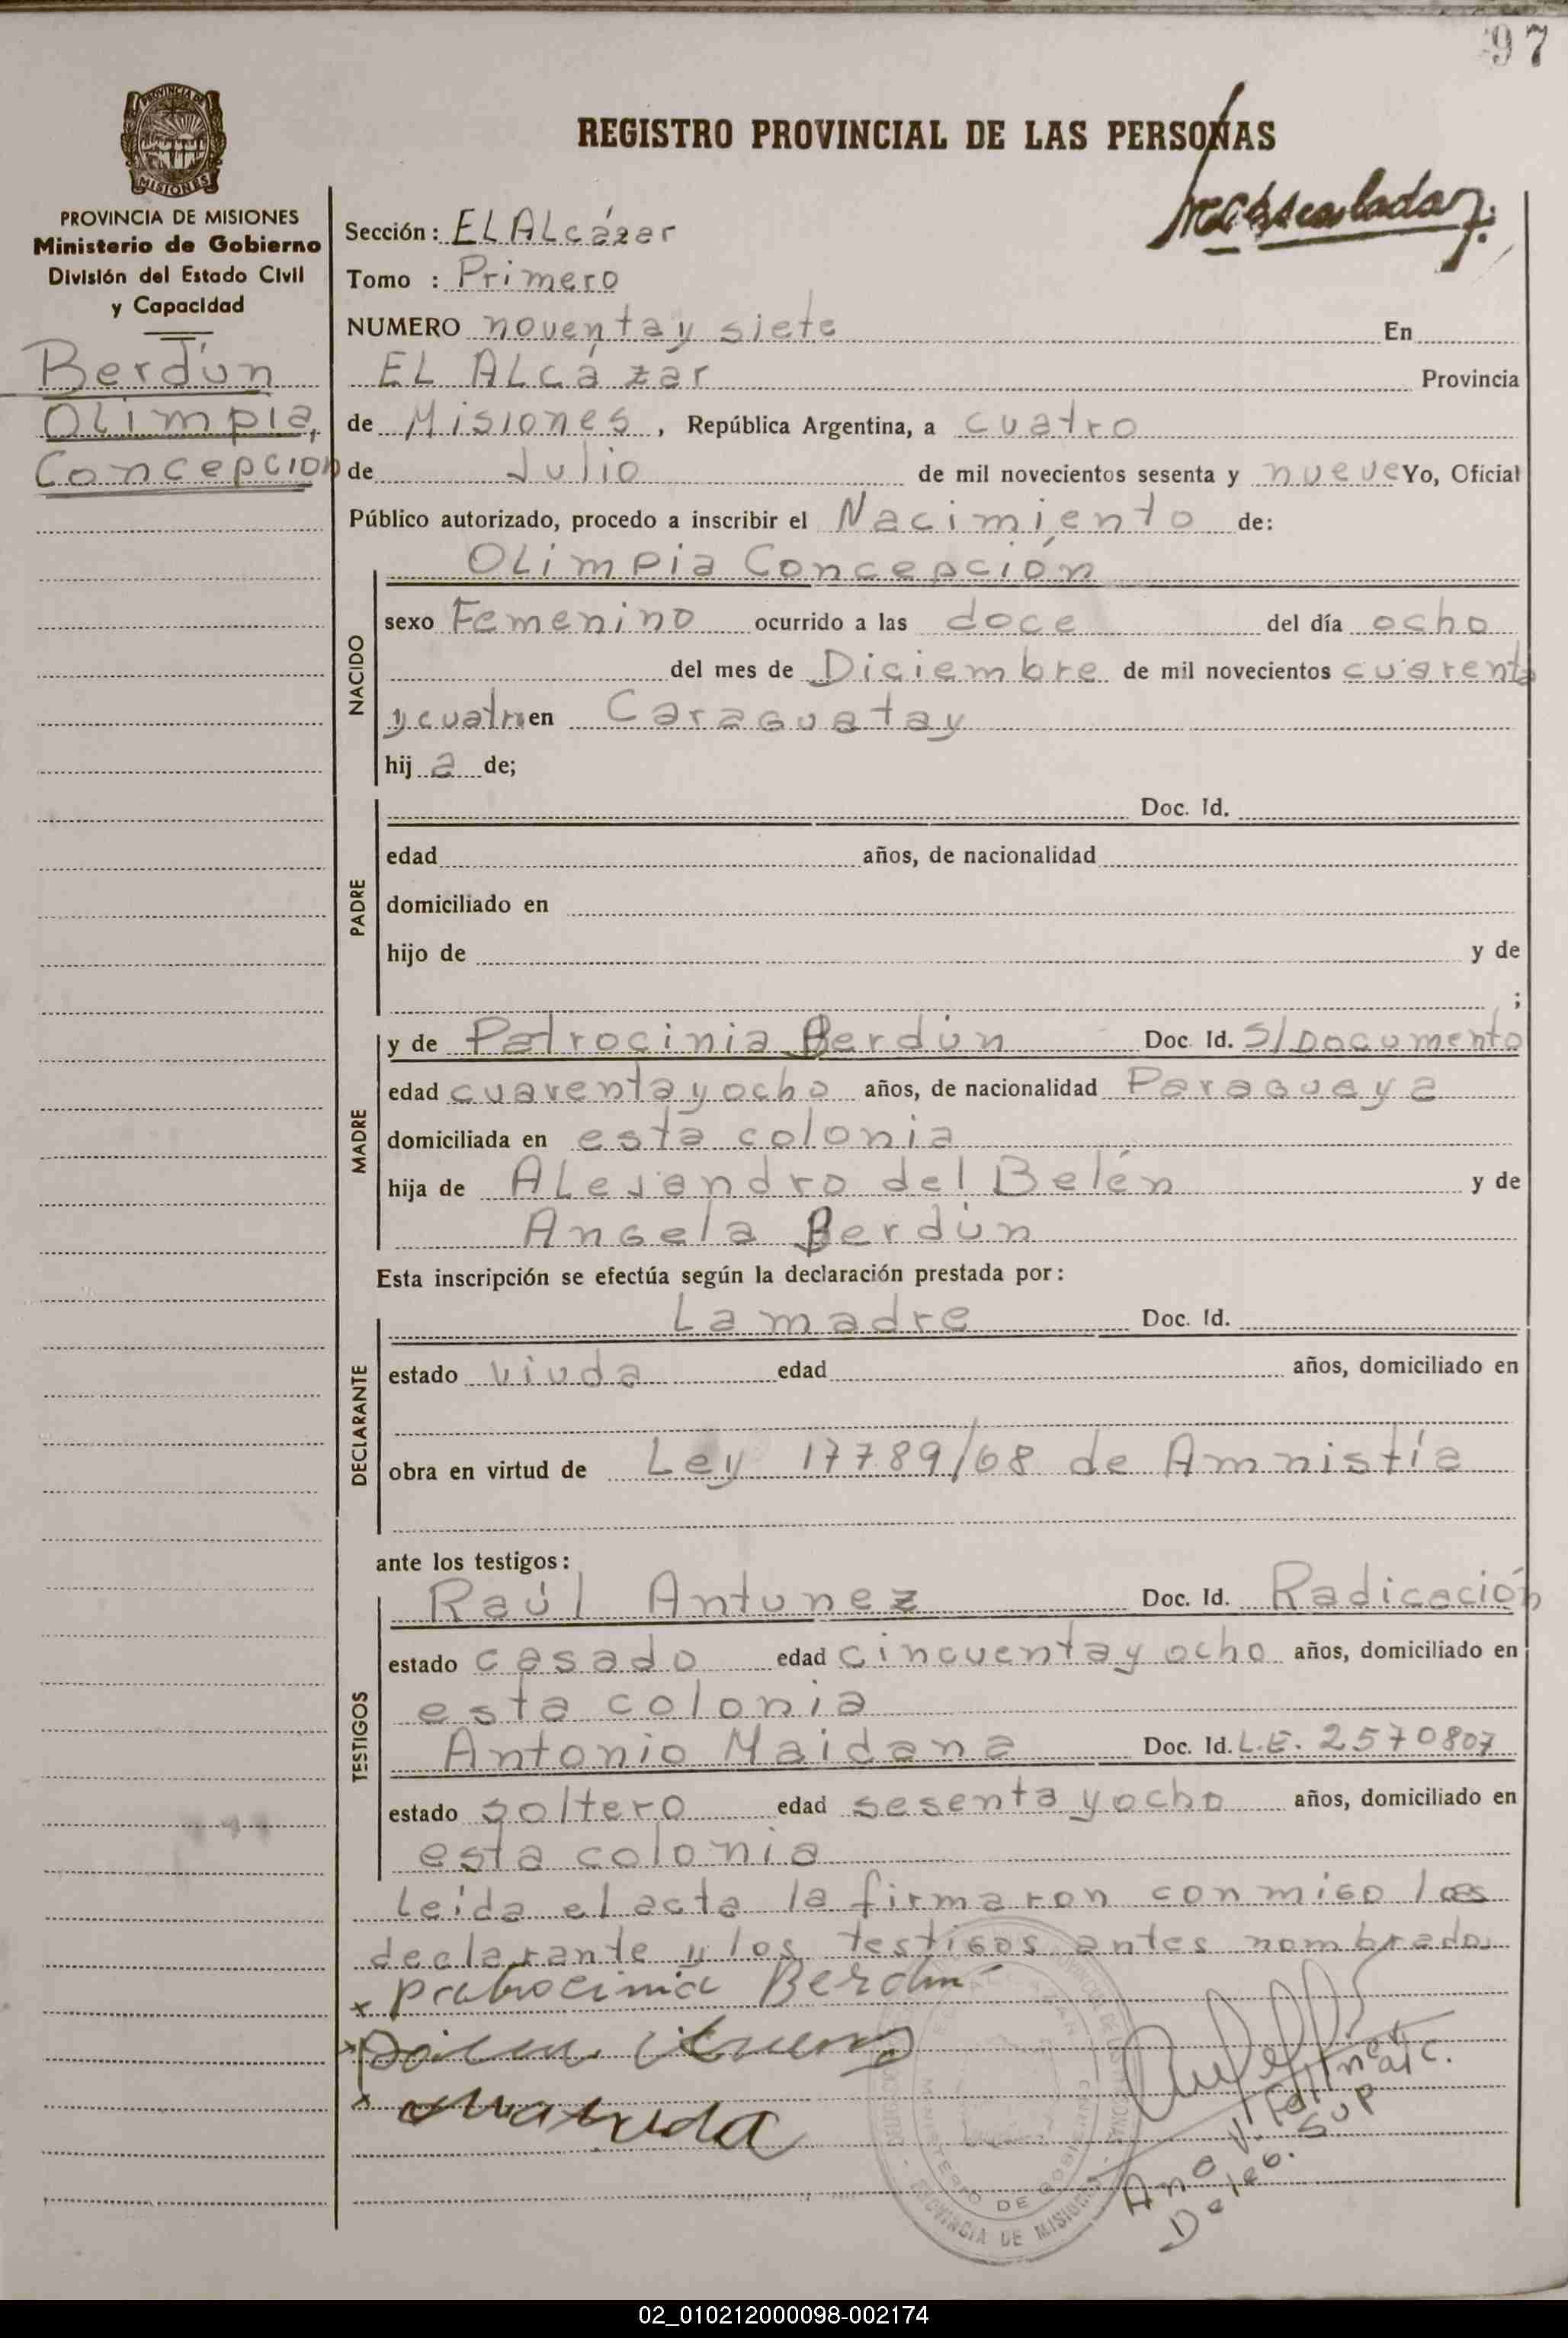 97
REGISTRO PROVINCIAL DE LAS PERSONAS
PROVINCIA DE
MISIONES
PROVINCIA DE MISIONES
Ministerio de Gobierno
División del Estado Civil
y Capacidad
Berdún
Olimpia,
Concepcion
Sección: EL ALcázar
Tomo : Primero
NUMERO noventa y siete En
EL ALcázar Provincia
de Misiones, República Argentina, a cuatro
de Julio de mil novecientos sesenta y nueve Yo, Oficial
Público autorizado, procedo a inscribir el Nacimiento de:
OLimpia Concepción
NACIDO
sexo Femenino ocurrido a las doce del día ocho
del mes de Diciembre de mil novecientos cuarenta
y cuatro en Caraguatay
hija de;
PADRE
Doc. Id.
edad años, de nacionalidad
domiciliado en
hijo de y de
;
MADRE
y de Patrocinia Berdún Doc. Id. S/Documento
edad cuarenta y ocho años, de nacionalidad Paraguaya
domiciliada en esta colonia
hija de ALejandro del Belén y de
Angela Berdún
Esta inscripción se efectúa según la declaración prestada por:
DECLARANTE
La madre Doc. Id.
estado viuda edad años, domiciliado en
obra en virtud de Ley 17789/68 de Amnistía
ante los testigos:
TESTIGOS
Raúl Antunez Doc. Id. Radicación
estado casado edad cincuenta y ocho años, domiciliado en
esta colonia
Antonio Maidana Doc. Id. L.E. 2570807
estado soltero edad sesenta y ocho años, domiciliado en
esta colonia
Leida el acta la firmaron conmigo los
declarante y los testigos antes nombrado
x patrocinia Berdun
x
x
MINISTERIO DE GOBIERNO
PROVINCIA DE MISIONES
Ana V.
Deleg. Sup
02_010212000098-002174